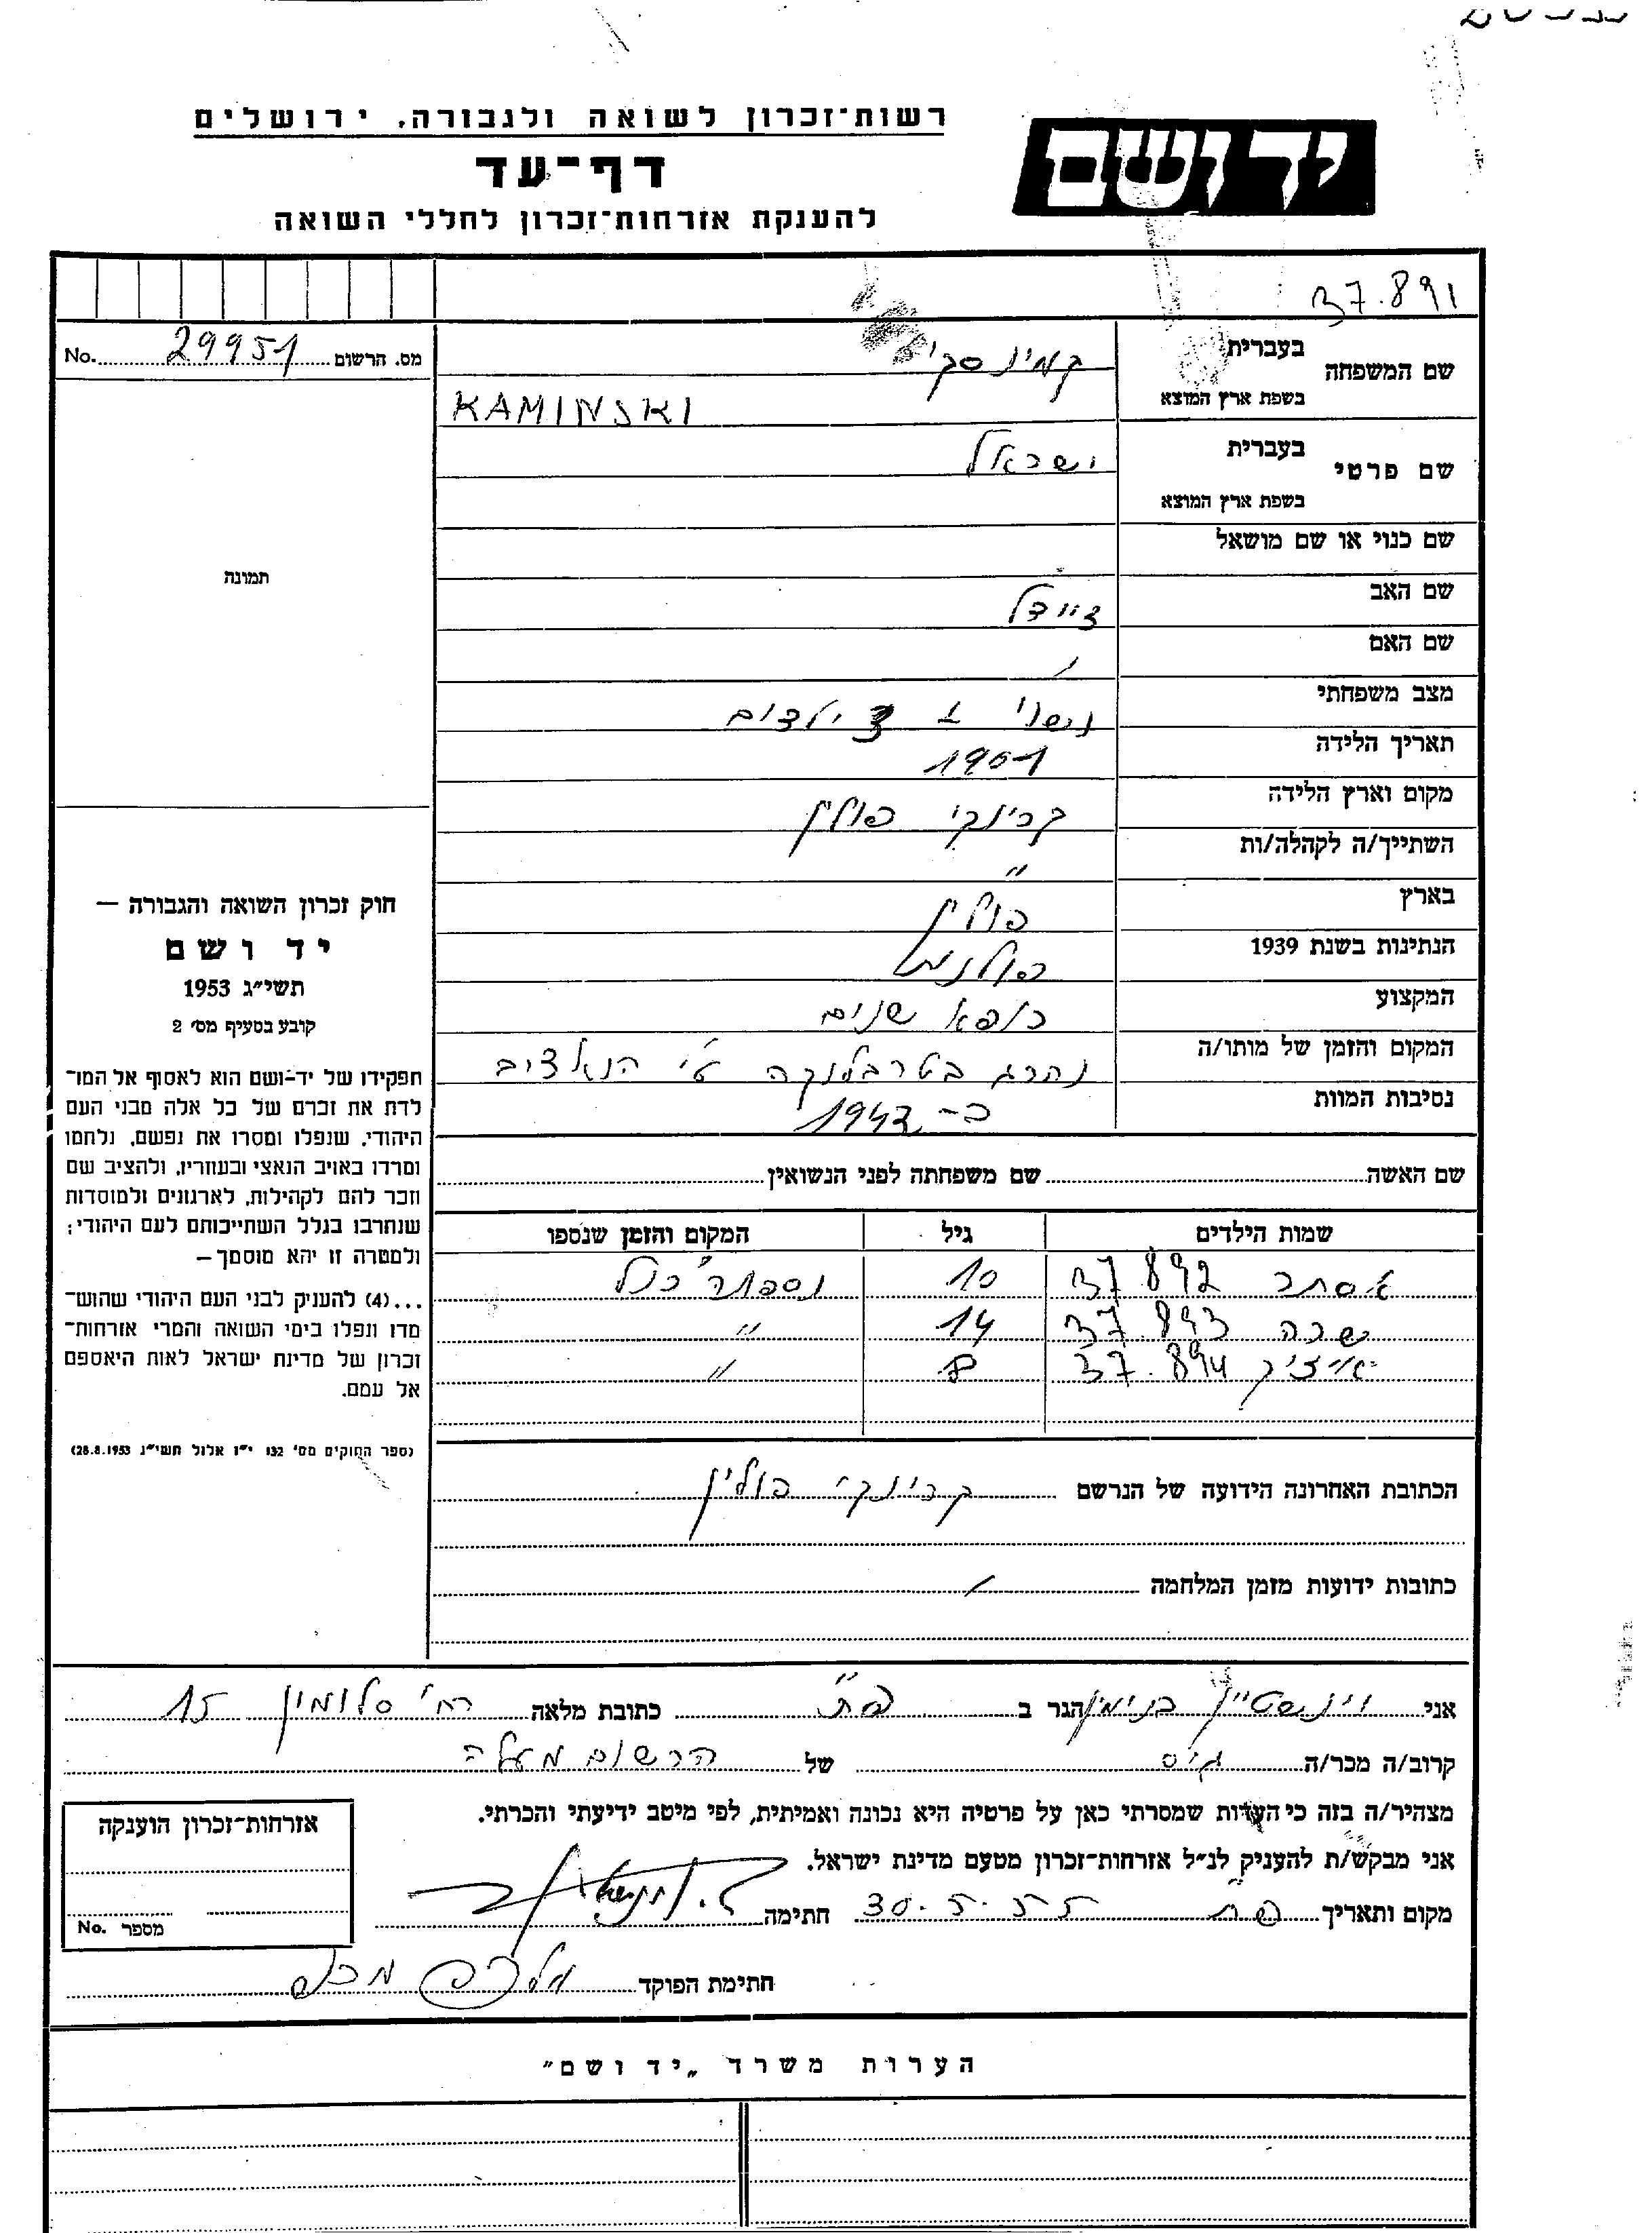 רשות־זכרון לשואה ולגבורה, ירושלים
יד ושם
דף־עד
להענקת אזרחות־זכרון לחללי השואה
37.891
מס. הרשום 29951 No.
שם המשפחה
בעברית קמינסקי
בשפת ארץ המוצא KAMINSKI
שם פרטי
בעברית ישראל
בשפת ארץ המוצא
שם כנוי או שם מושאל
תמונה
שם האב זיידל
שם האם
מצב משפחתי נשוי + 3 ילדים
תאריך הלידה 1901
מקום וארץ הלידה קרינקי פולין
השתייך/ה לקהלה/ות "
בארץ פולין
הנתינות בשנת 1939 פולנית
המקצוע רופא שנים
המקום והזמן של מותו/ה נהרג בטרבלינקה ע"י הנאצים
נסיבות המוות ב-1942
שם האשה שם משפחתה לפני הנשואין
שמות הילדים גיל המקום והזמן שנספו
אסתר 37.892 10 נספתה כנ"ל
שרה 37.893 14 "
איציק 37.894 8 "
חוק זכרון השואה והגבורה —
יד ושם
תשי״ג 1953
קובע בסעיף מס׳ 2
תפקידו של יד־ושם הוא לאסוף אל המו־
לדת את זכרם של כל אלה מבני העם
היהודי, שנפלו ומסרו את נפשם, נלחמו
ומרדו באויב הנאצי ובעוזריו, ולהציב שם
וזכר להם לקהילות, לארגונים ולמוסדות
שנחרבו בגלל השתייכותם לעם היהודי;
ולמטרה זו יהא מוסמך—
...(4) להעניק לבני העם היהודי שהוש־
מדו ונפלו בימי השואה והמרי אזרחות־
זכרון של מדינת ישראל לאות היאספם
אל עמם.
(ספר החוקים מס׳ 132 י״ז אלול תשי״ג 28.8.1953)
הכתובת האחרונה הידועה של הנרשם קרינקי פולין
כתובות ידועות מזמן המלחמה
אני וינשטיין בנימין הגר ב פ"ת כתובת מלאה רח' סלומון 15
קרוב/ה מכר/ה גיס של הרשום מעלה
מצהיר/ה בזה כי העדות שמסרתי כאן על פרטיה היא נכונה ואמיתית, לפי מיטב ידיעתי והכרתי.
אני מבקש/ת להעניק לנ״ל אזרחות־זכרון מטעם מדינת ישראל.
מקום ותאריך פ"ת 30.5.55 חתימה
חתימת הפוקד
אזרחות־זכרון הוענקה
מספר No.
הערות משרד „יד ושם״